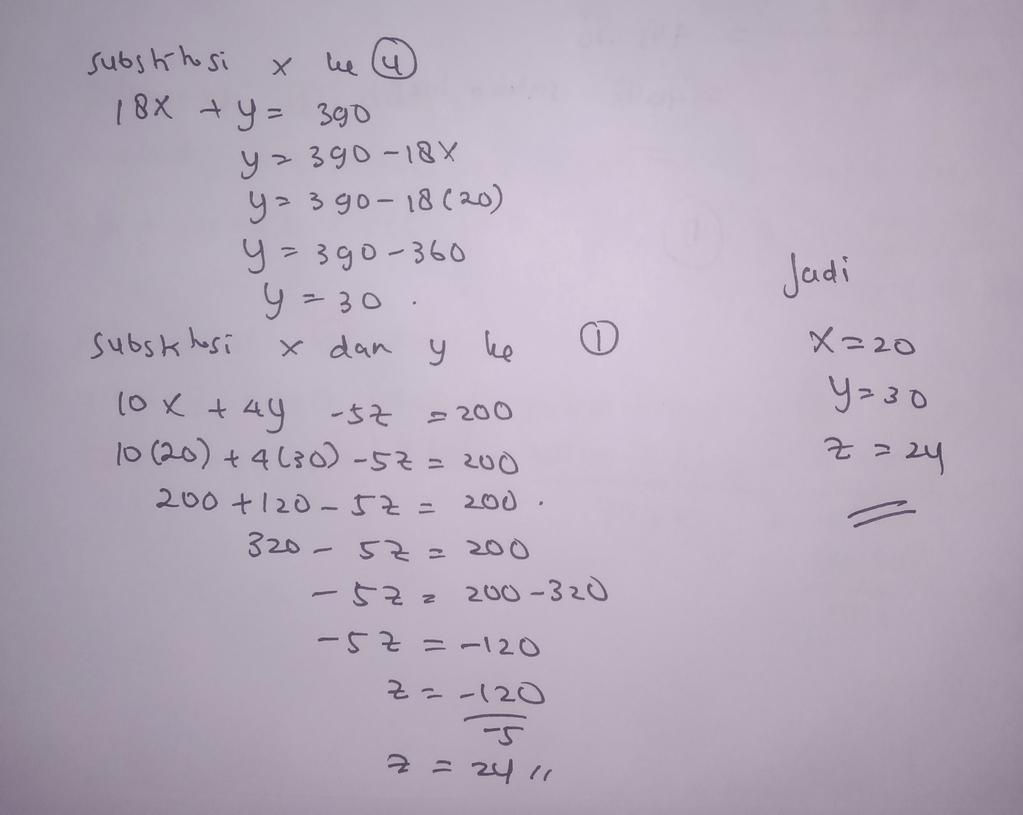 substitusi x ke ④
18x + y = 390
y = 390 - 18x
y = 390 - 18(20)
y = 390 - 360
y = 30.
substitusi x dan y ke ①
10x + 4y - 5z = 200
10(20) + 4(30) - 5z = 200
200 + 120 - 5z = 200.
320 - 5z = 200
-5z = 200 - 320
-5z = -120
z = -120
-5
z = 24 //
Jadi
x = 20
y = 30
z = 24